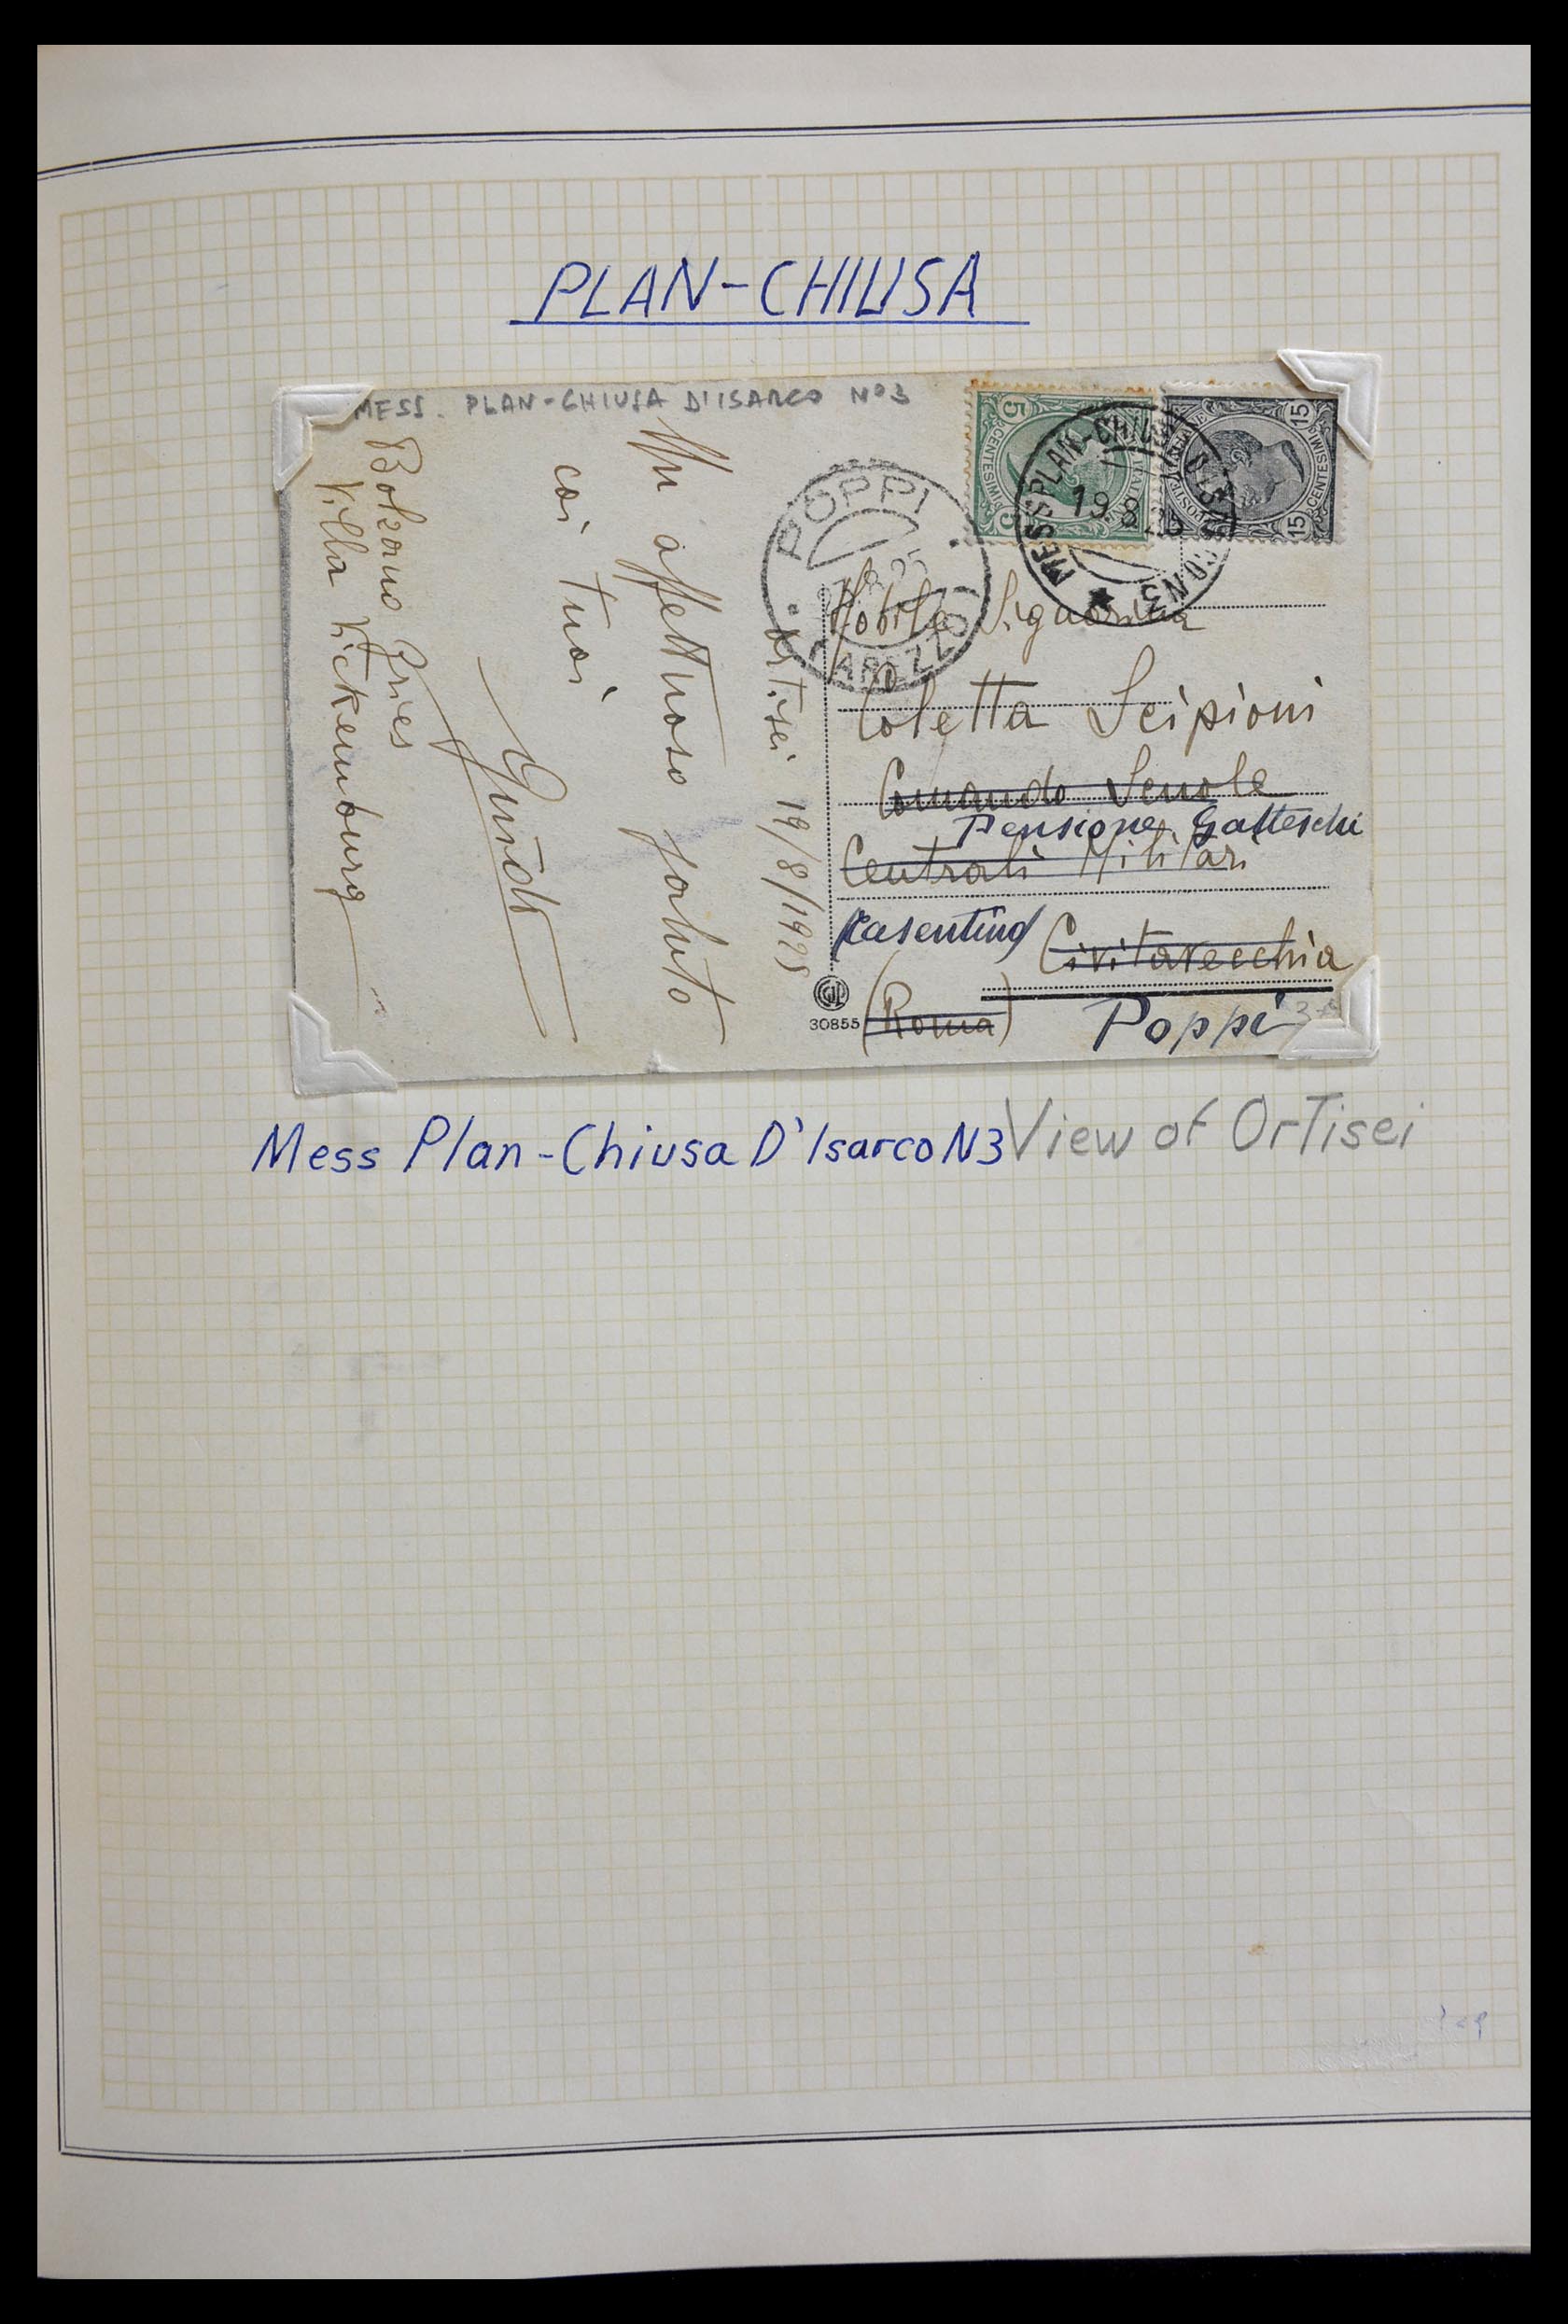 PLAN-CHIUSA
MESS. PLAN-CHIUSA D'ISARCO Nº3
5 CENTESIMI 5
15 CENTESIMI 15
POSTE ITALIANE
MESS PLAN-CHIUSA D'ISARCO N3
19 8 25
POPPI
(AREZZO)
Ortisei 19/8/1925
Un affettuoso saluto
coi tuoi
Bolzano Gries
Villa Vickemburg
Nobile Signorina
Coletta Scipioni
Comando Scuole
Pensione Gatteschi
Centrali Militari
(Casentino) Civitavecchia
(Roma) Poppi
30855
Mess Plan-Chiusa D'Isarco N3 View of Ortisei